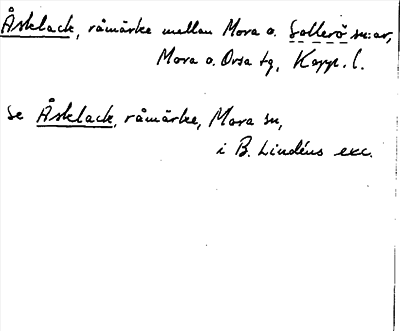 Åsklack, råmärke mellan Mora o. Sollerö sn:ar,
Mora o. Orsa tg, Kopp. l.
Se Åsklack, råmärke, Mora sn,
i B. Lindéns exc.